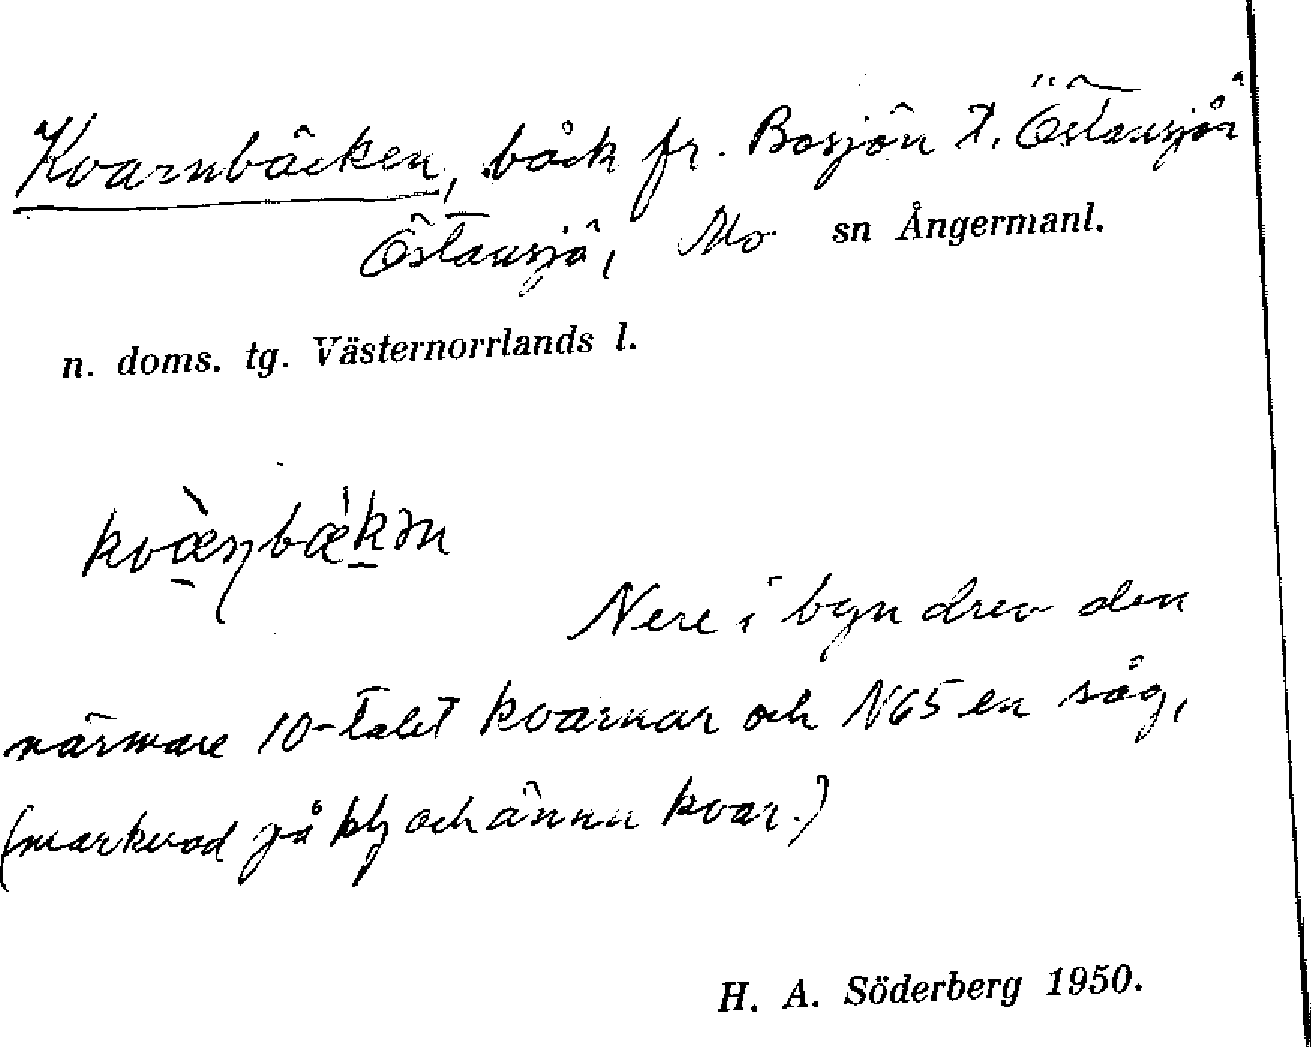 Kvarnbäcken, bäck fr. Bosjön t. Östansjön
Östansjö, Mo sn Ångermanl.
n. doms. tg. Västernorrlands l.
Nere i byn drev den
närmare 10-talet kvarnar och N65 en såg,
(markerad på och ännu kvar.)
H. A. Söderberg 1950.